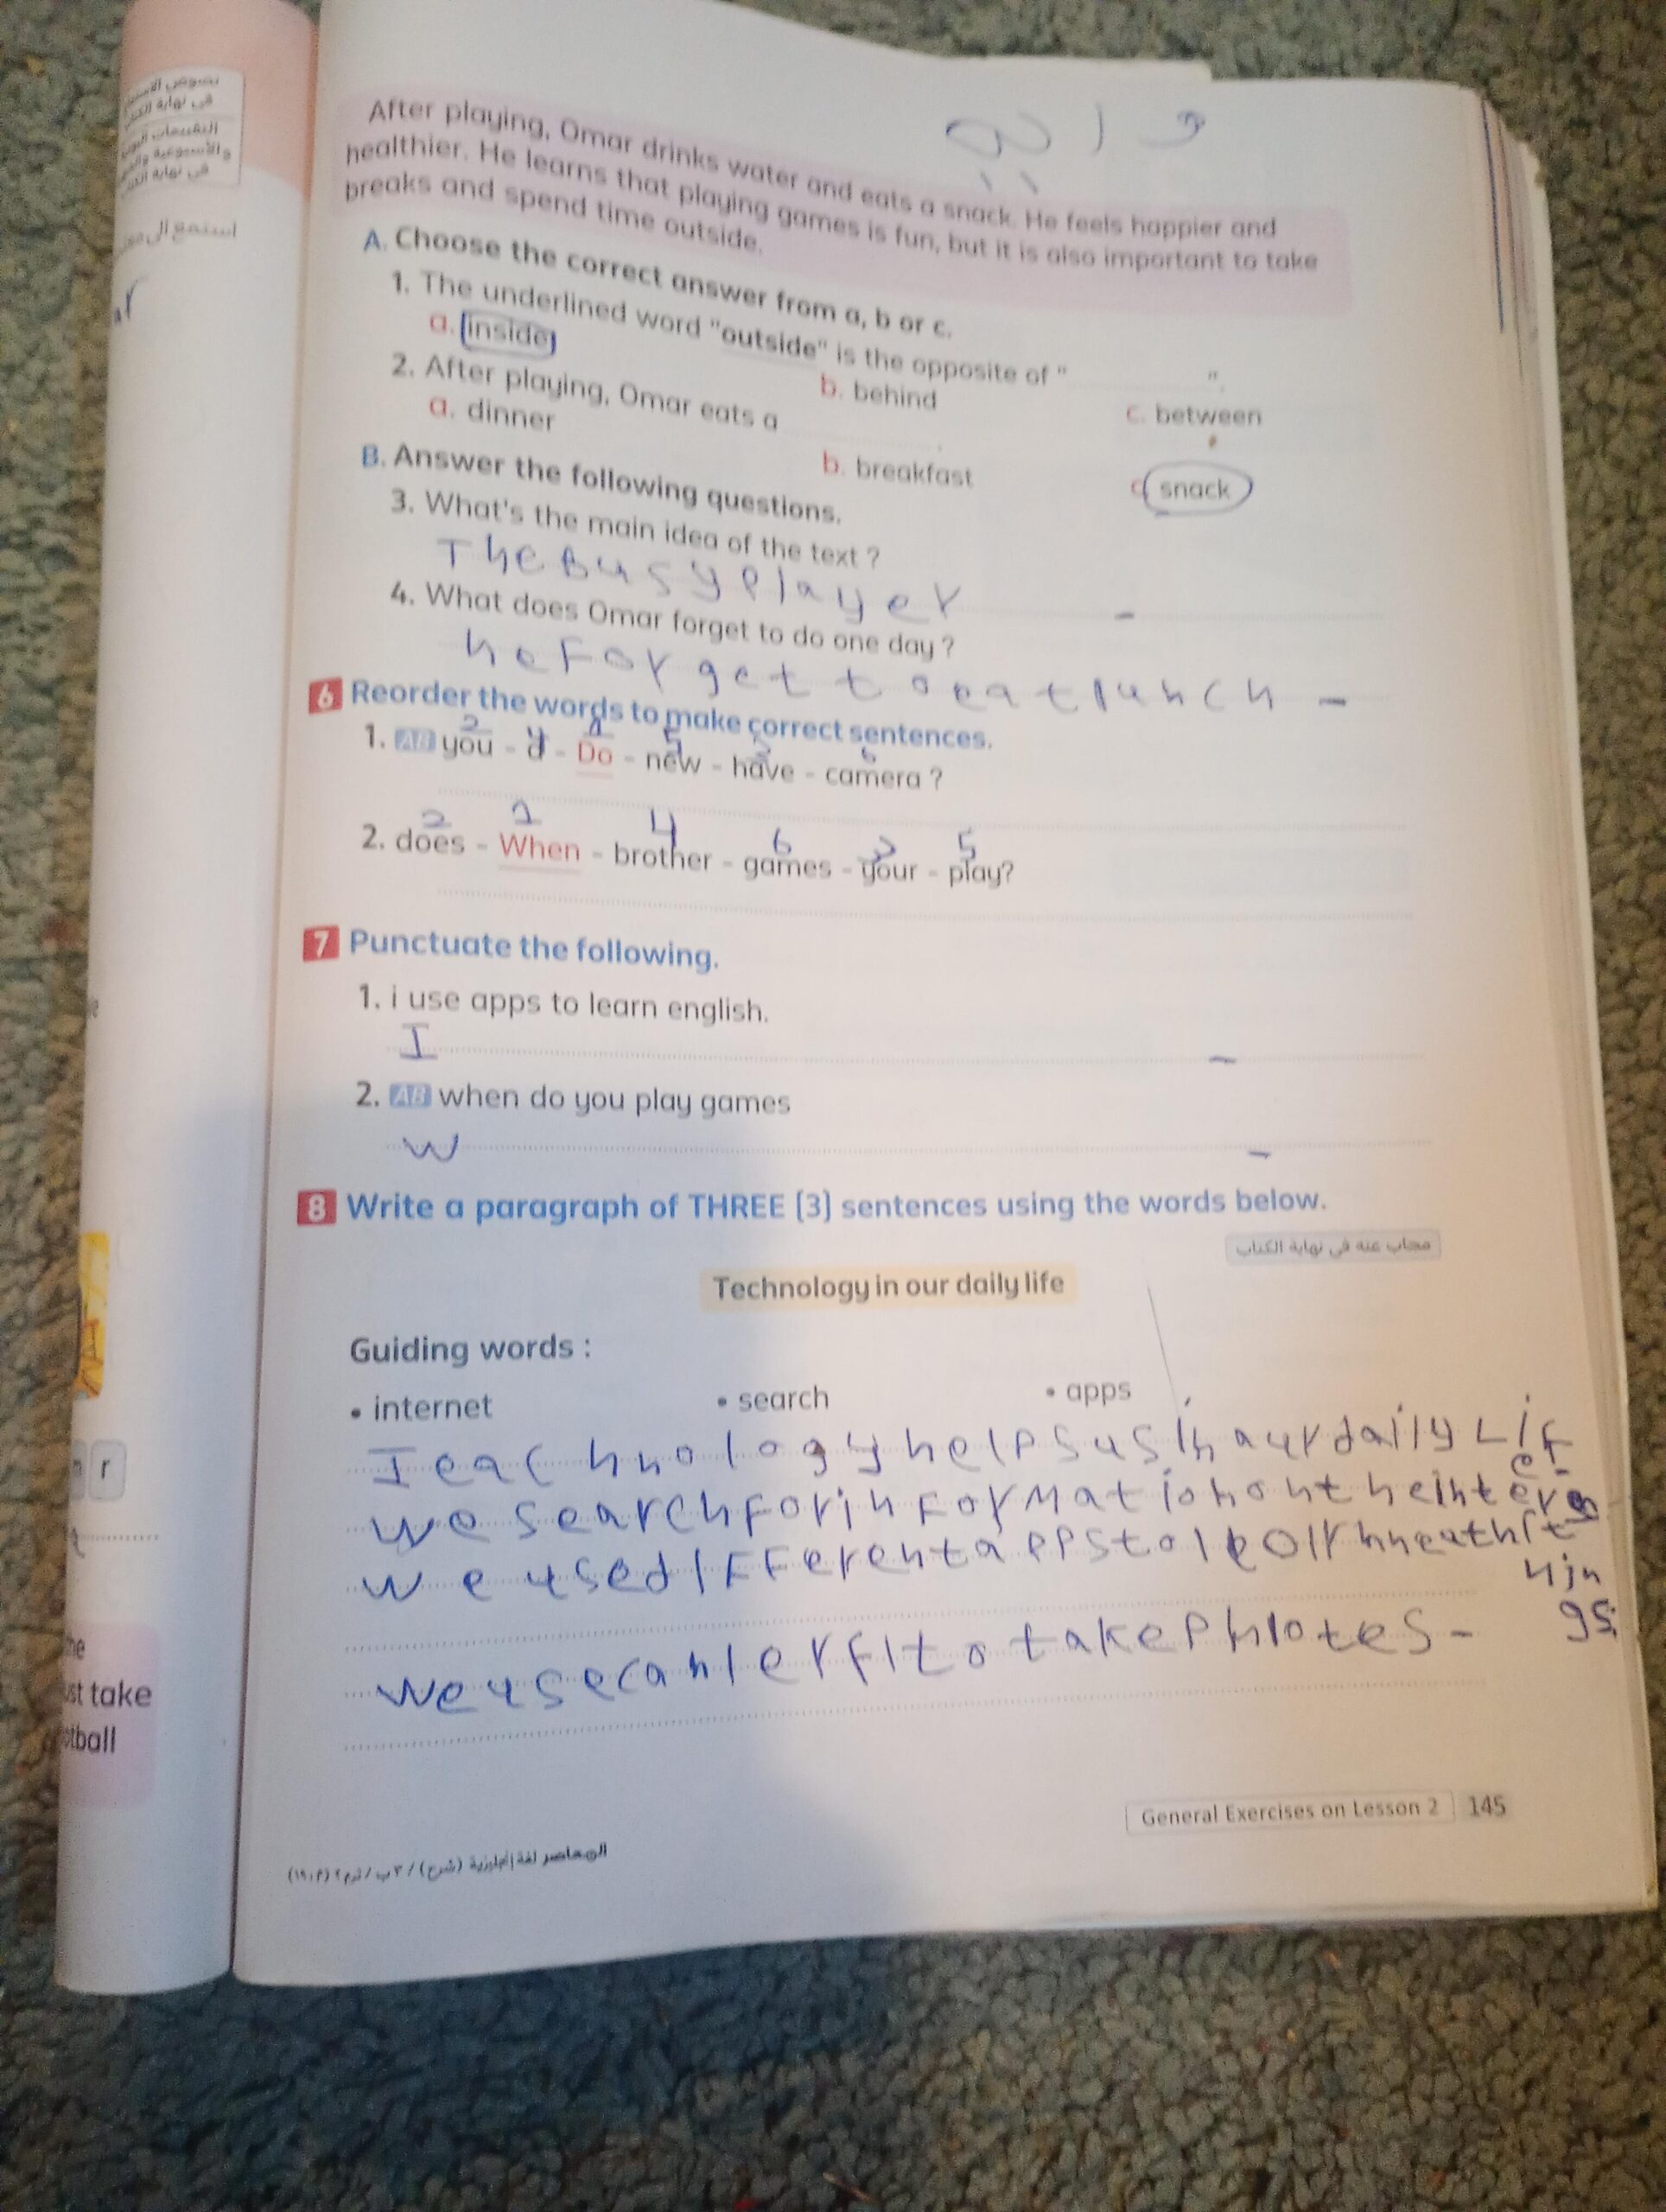 After playing, Omar drinks water and eats a snack. He feels happier and
healthier. He learns that playing games is fun, but it is also important to take
breaks and spend time outside.
A. Choose the correct answer from a, b or c.
1. The underlined word "outside" is the opposite of " ".
a. inside b. behind c. between
2. After playing, Omar eats a
a. dinner b. breakfast c. snack
B. Answer the following questions.
3. What's the main idea of the text ?
The Busy player
4. What does Omar forget to do one day ?
he Forget to eat lunch -
6 Reorder the words to make correct sentences.
2 4 1 5 3 6
1. AB you - a - Do - new - have - camera ?
2 1 4 6 3 5
2. does - When - brother - games - your - play?
7 Punctuate the following.
1. i use apps to learn english.
I -
2. AB when do you play games
W -
8 Write a paragraph of THREE (3) sentences using the words below.
مجاب عنه فى نهاية الكتاب
Technology in our daily life
Guiding words :
• internet • search • apps
helps us in daily Lif
e.
we search For inFormation on the
we use diFFerent apps to
we use to take
General Exercises on Lesson 2 145
المعاصر لغة إنجليزية (شرح) / ٣ ب / ترم ٢ (م: ١٩)
استمع إلى
في نهاية
r
st take
tball